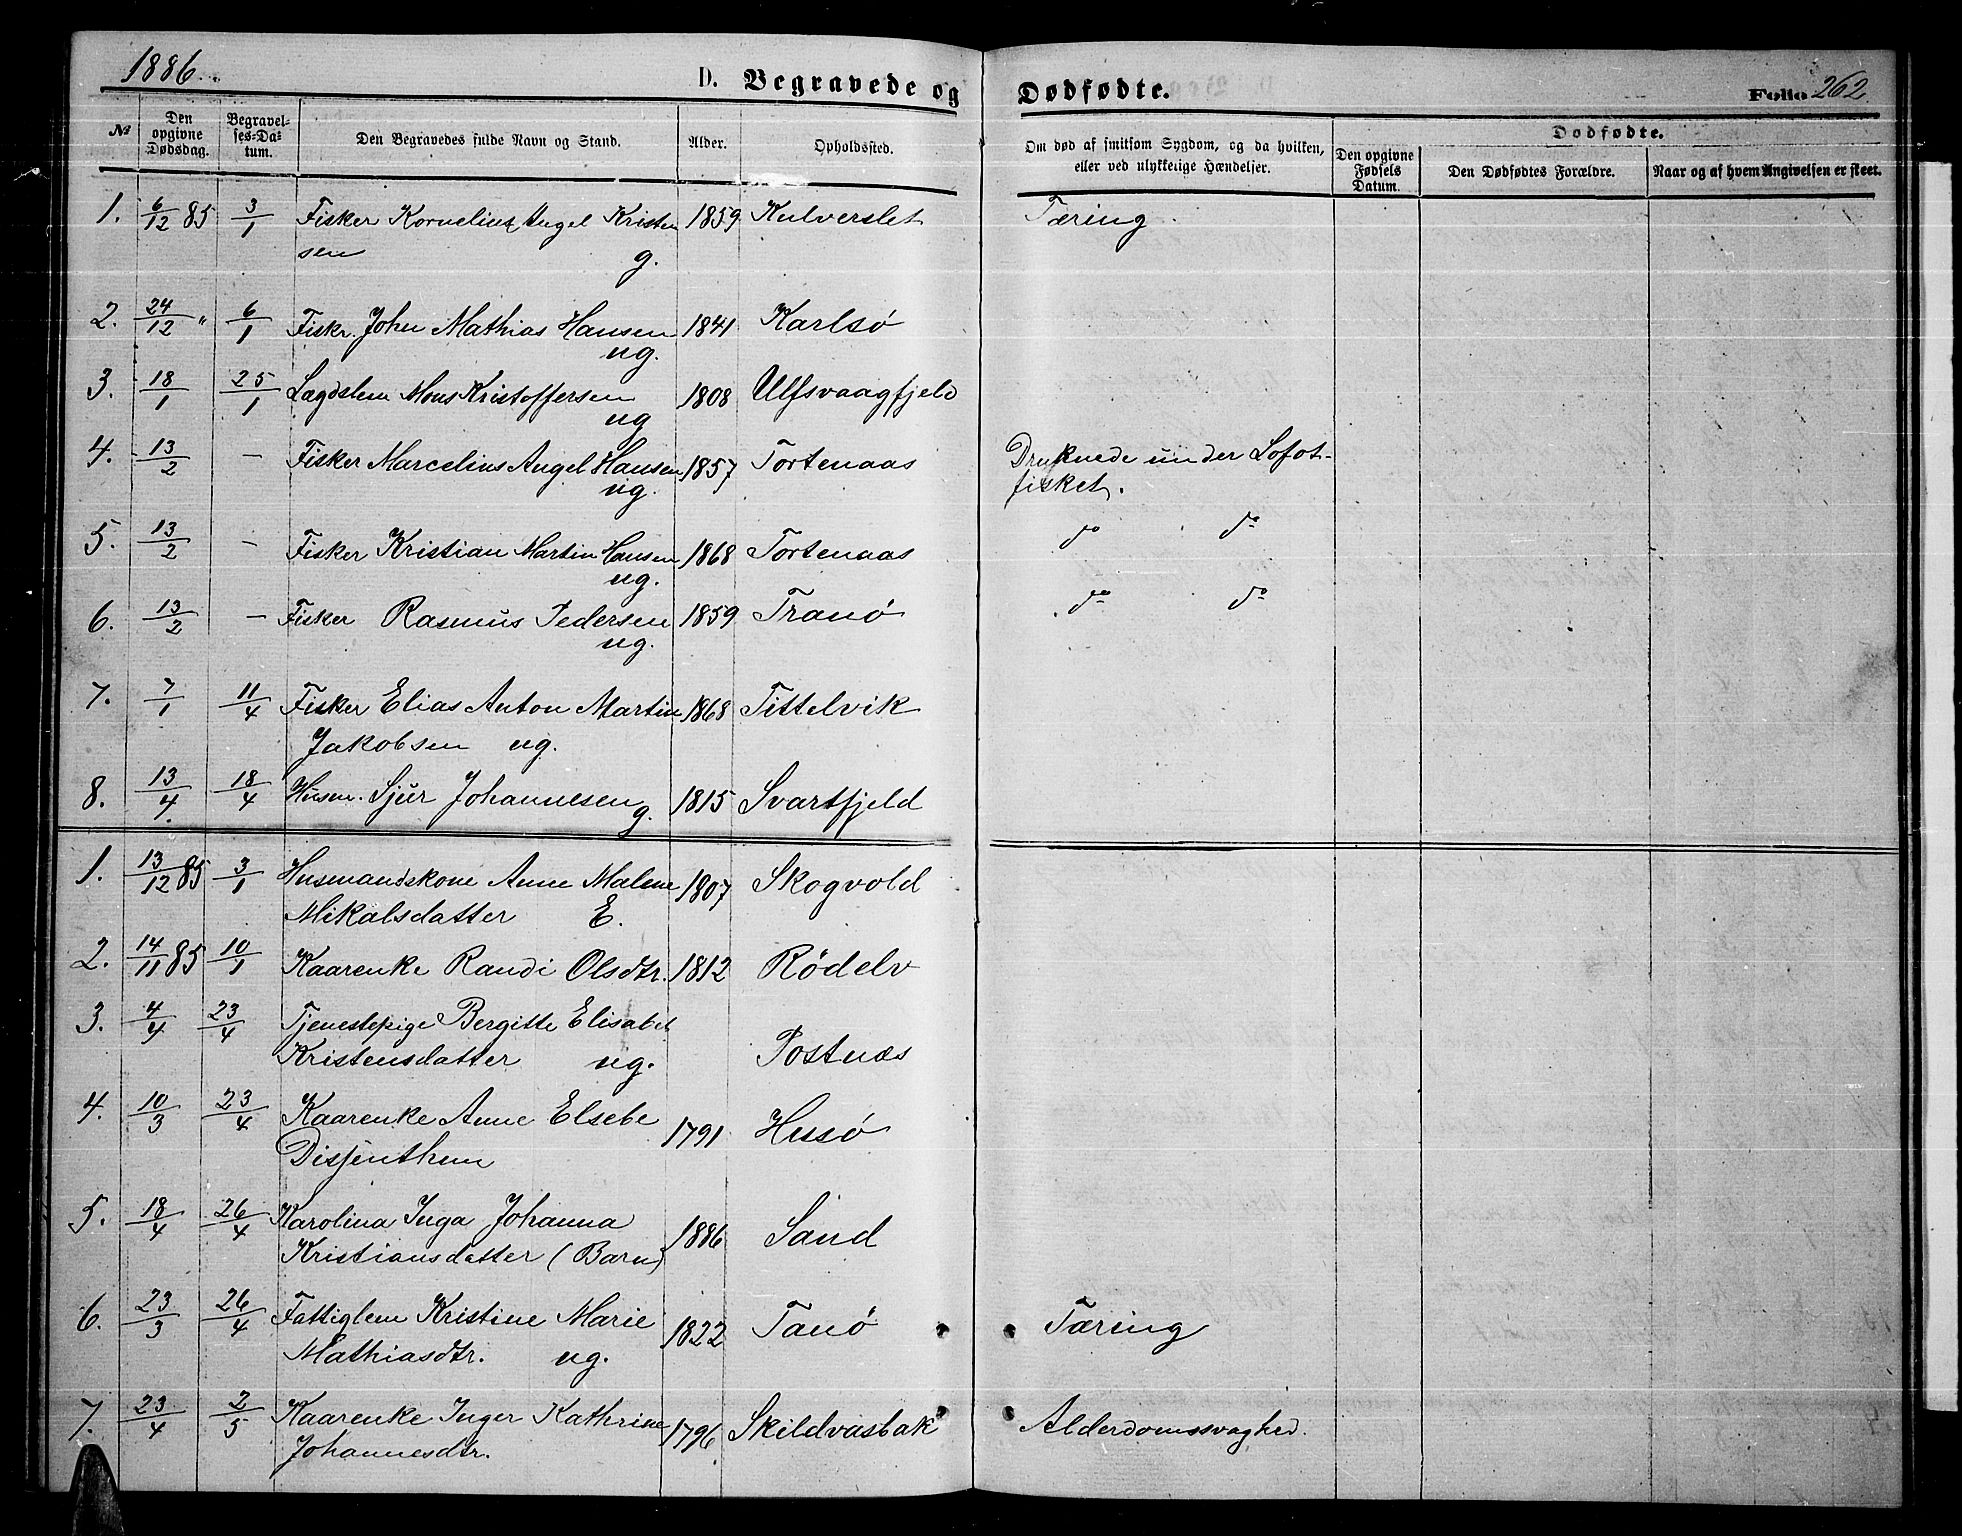 1886.
D. Begravede og Dødfødte.
Folio 262
№
Den opgivne Dødsdag.
Begravelses-Datum.
Den Begravedes fulde Navn og Stand.
Alder.
Opholdssted.
Om død af smitsom Sygdom, og da hvilken, eller ved ulykkelige Hændelser.
Dødfødte.
Den opgivne Fødsels Datum.
Den Dødfødtes Forældre.
Naar og af hvem Angivelsen er skeet.
1. 6/12 85 3/1 Fisker Kornelius Angel Kristen 1859 Kulverslet Tæring
sen g.
2. 24/12 " 6/1 Fiskr. John Mathias Hansen 1841 Karlsø
ug.
3. 18/1 25/1 Lægdslem Mons Kristoffersen 1808 Ulfsvaagfjeld
ug
4. 13/2 - Fisker Marcelius Angel Hansen 1857 Tortenaas Druknede under Lofot-
ug. fisket.
5. 13/2 - Fisker Kristian Martin Hansen 1868 Tortenaas do do
ug.
6. 13/2 - Fisker Rasmus Pedersen 1859 Tranø do do
ug.
7. 7/1 11/4 Fisker Elias Anton Martin 1868 Tittelvik
Jakobsen ug.
8. 13/4. 18/4 Husm. Sjur Johannesen g. 1815 Svartfjeld
1. 13/12 85 3/1 Husmandskone Anne Malene 1807 Skogvold
Mikalsdatter E.
2. 14/11 85 10/1 Kaarenke Randi Olsdtr. 1812 Rødelv
3. 4/4 23/4 Tjenestepige Bergitte Elisabet
Kristensdatter ug. Postnæs
4. 10/3 23/4 Kaarenke Anne Elsebe 1791 Husø
Disjenthun
5. 18/4 26/4 Karolina Inga Johanna 1886 Sand
Kristiansdatter (Barn)
6. 23/3 26/4 Fattiglem Kristine Marie 1822 Tanø Tæring
Mathiasdtr. ug.
7. 23/4 2/5 Kaarenke Inger Kathrine 1796 Skildvasbak Alderdomssvaghed.
Johannesdtr.